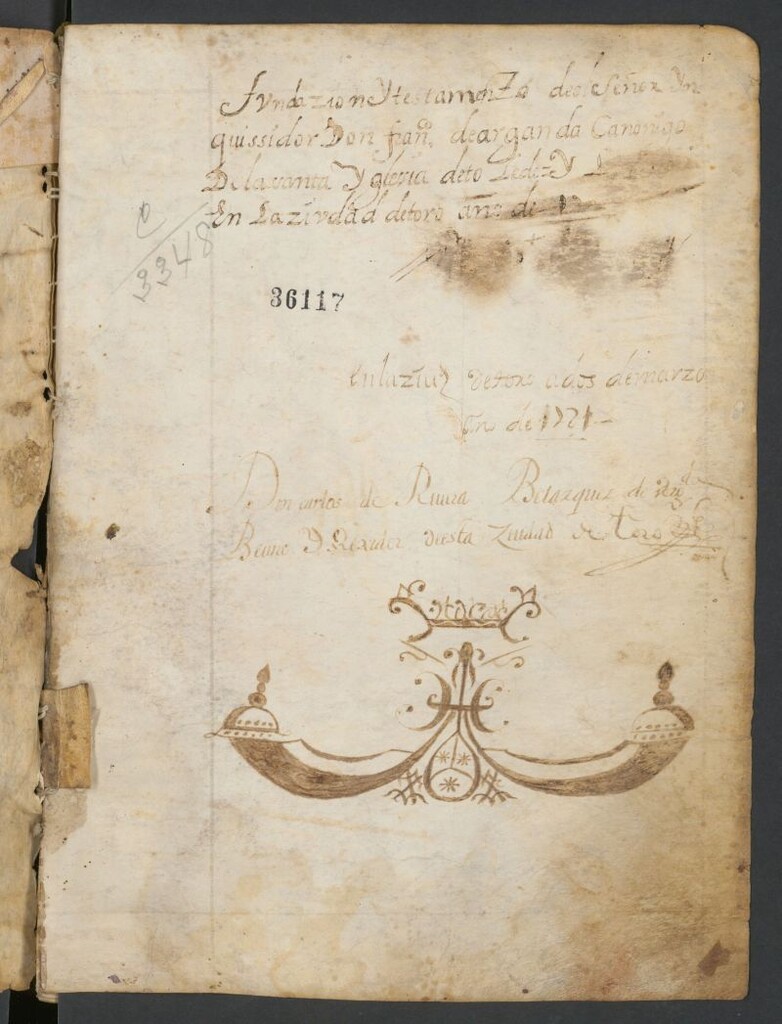 Fvndazion Y testamenZo deel Señor Yn
quissidor Don fran.co de arganda Canonigo
De la santa Yglesia de toledo Y
En La zivdad de toro año de
C
3348
36117
En la ziu.d de toro a dos de marzo
año de 1721
Don Carlos de Riuera Belazquez de
Vezino Y Rexidor de esta Ziudad de toro